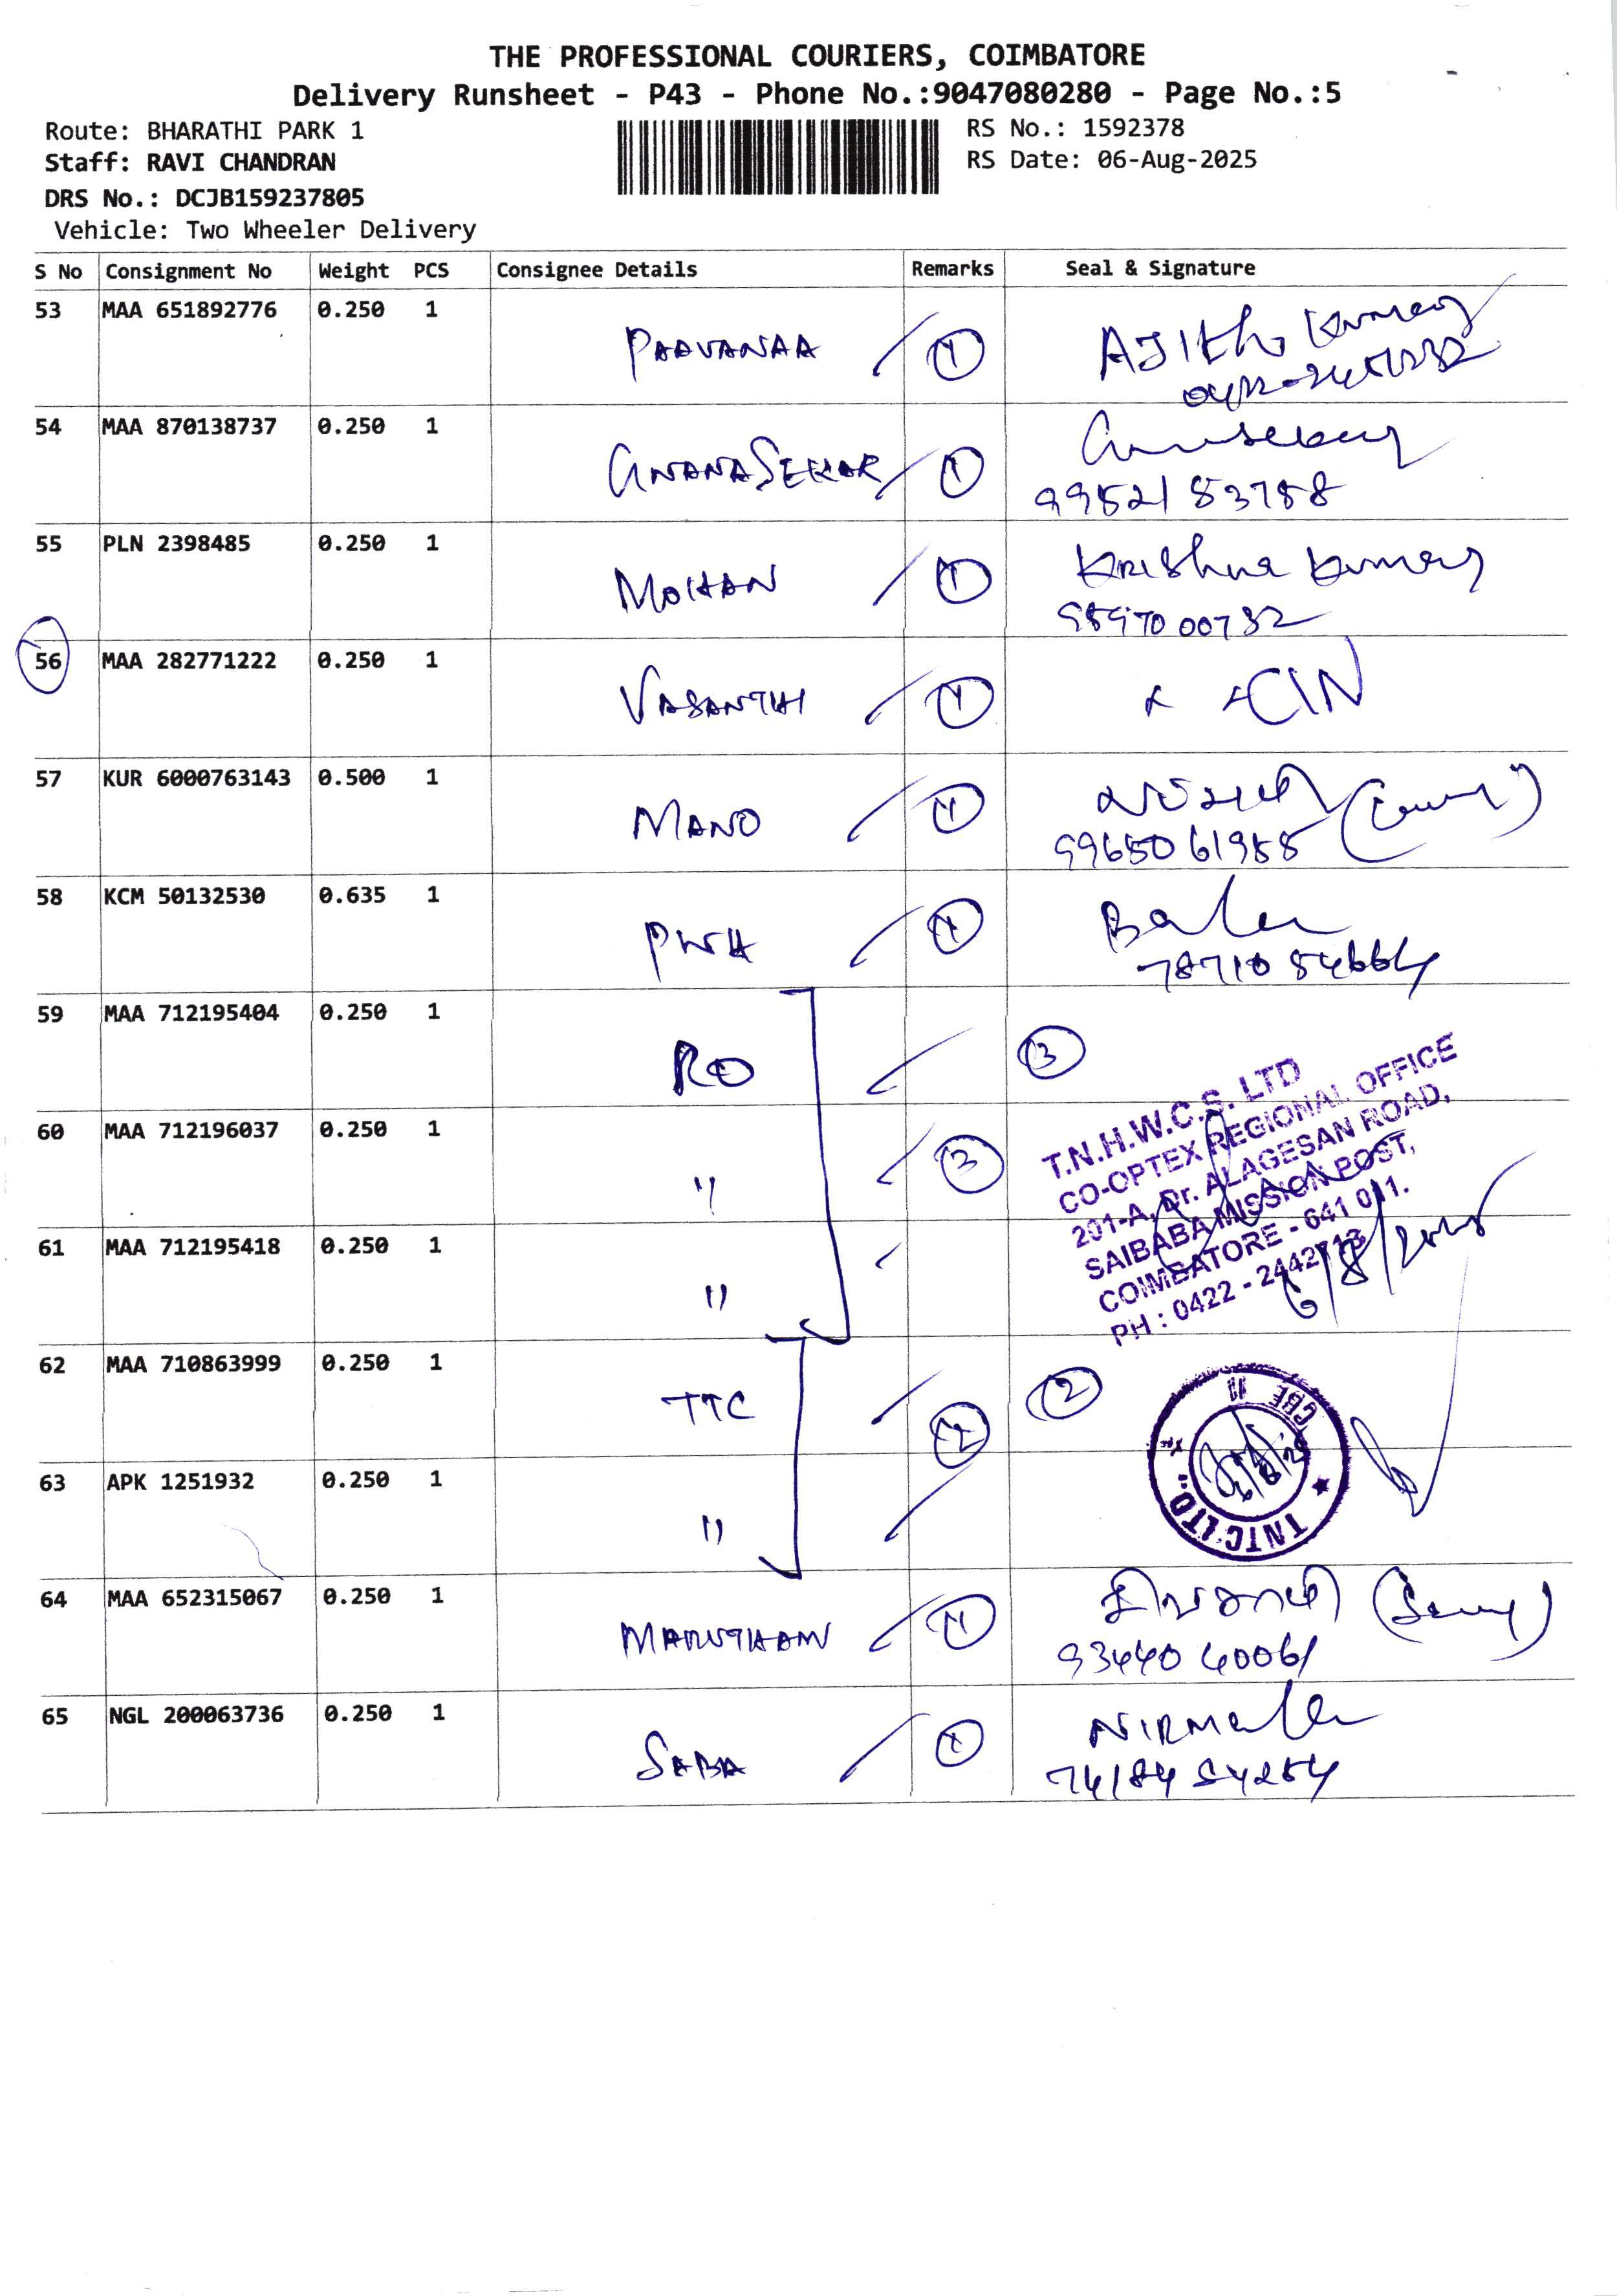 THE PROFESSIONAL COURIERS, COIMBATORE
Delivery Runsheet - P43 - Phone No.:9047080280 - Page No.:5
Route: BHARATHI PARK 1
RS No.: 1592378
Staff: RAVI CHANDRAN
RS Date: 06-Aug-2025
DRS No.: DCJB159237805
Vehicle: Two Wheeler Delivery
S No Consignment No Weight PCS Consignee Details Remarks Seal & Signature
53 MAA 651892776 0.250 1
PAAVANAA 1 AJIth Kumar
54 MAA 870138737 0.250 1
GNANASEKAR 1
99521 53758
55 PLN 2398485 0.250 1
MOHAN 1 Krishna Kumar
56 MAA 282771222 0.250 1
VASANTHI 1
57 KUR 6000763143 0.500 1
MANO 1
99650 61955
58 KCM 50132530 0.635 1
PWH 1 Bala
78710 54664
59 MAA 712195404 0.250 1
RO 3
60 MAA 712196037 0.250 1
" 3
61 MAA 712195418 0.250 1
"
T.N.H.W.C.S. LTD
CO-OPTEX REGIONAL OFFICE
201-A, Dr. ALAGESAN ROAD,
SAIBABA MISSION POST,
COIMBATORE - 641 011.
PH : 0422 - 2442713
6/8/2025
62 MAA 710863999 0.250 1
TTC 2 2
63 APK 1251932 0.250 1
"
TNTC LTD., CBE 11
64 MAA 652315067 0.250 1
MARUTHAM 1
93440 40061
65 NGL 200063736 0.250 1
SABA 1 NIRMala
74184 54254